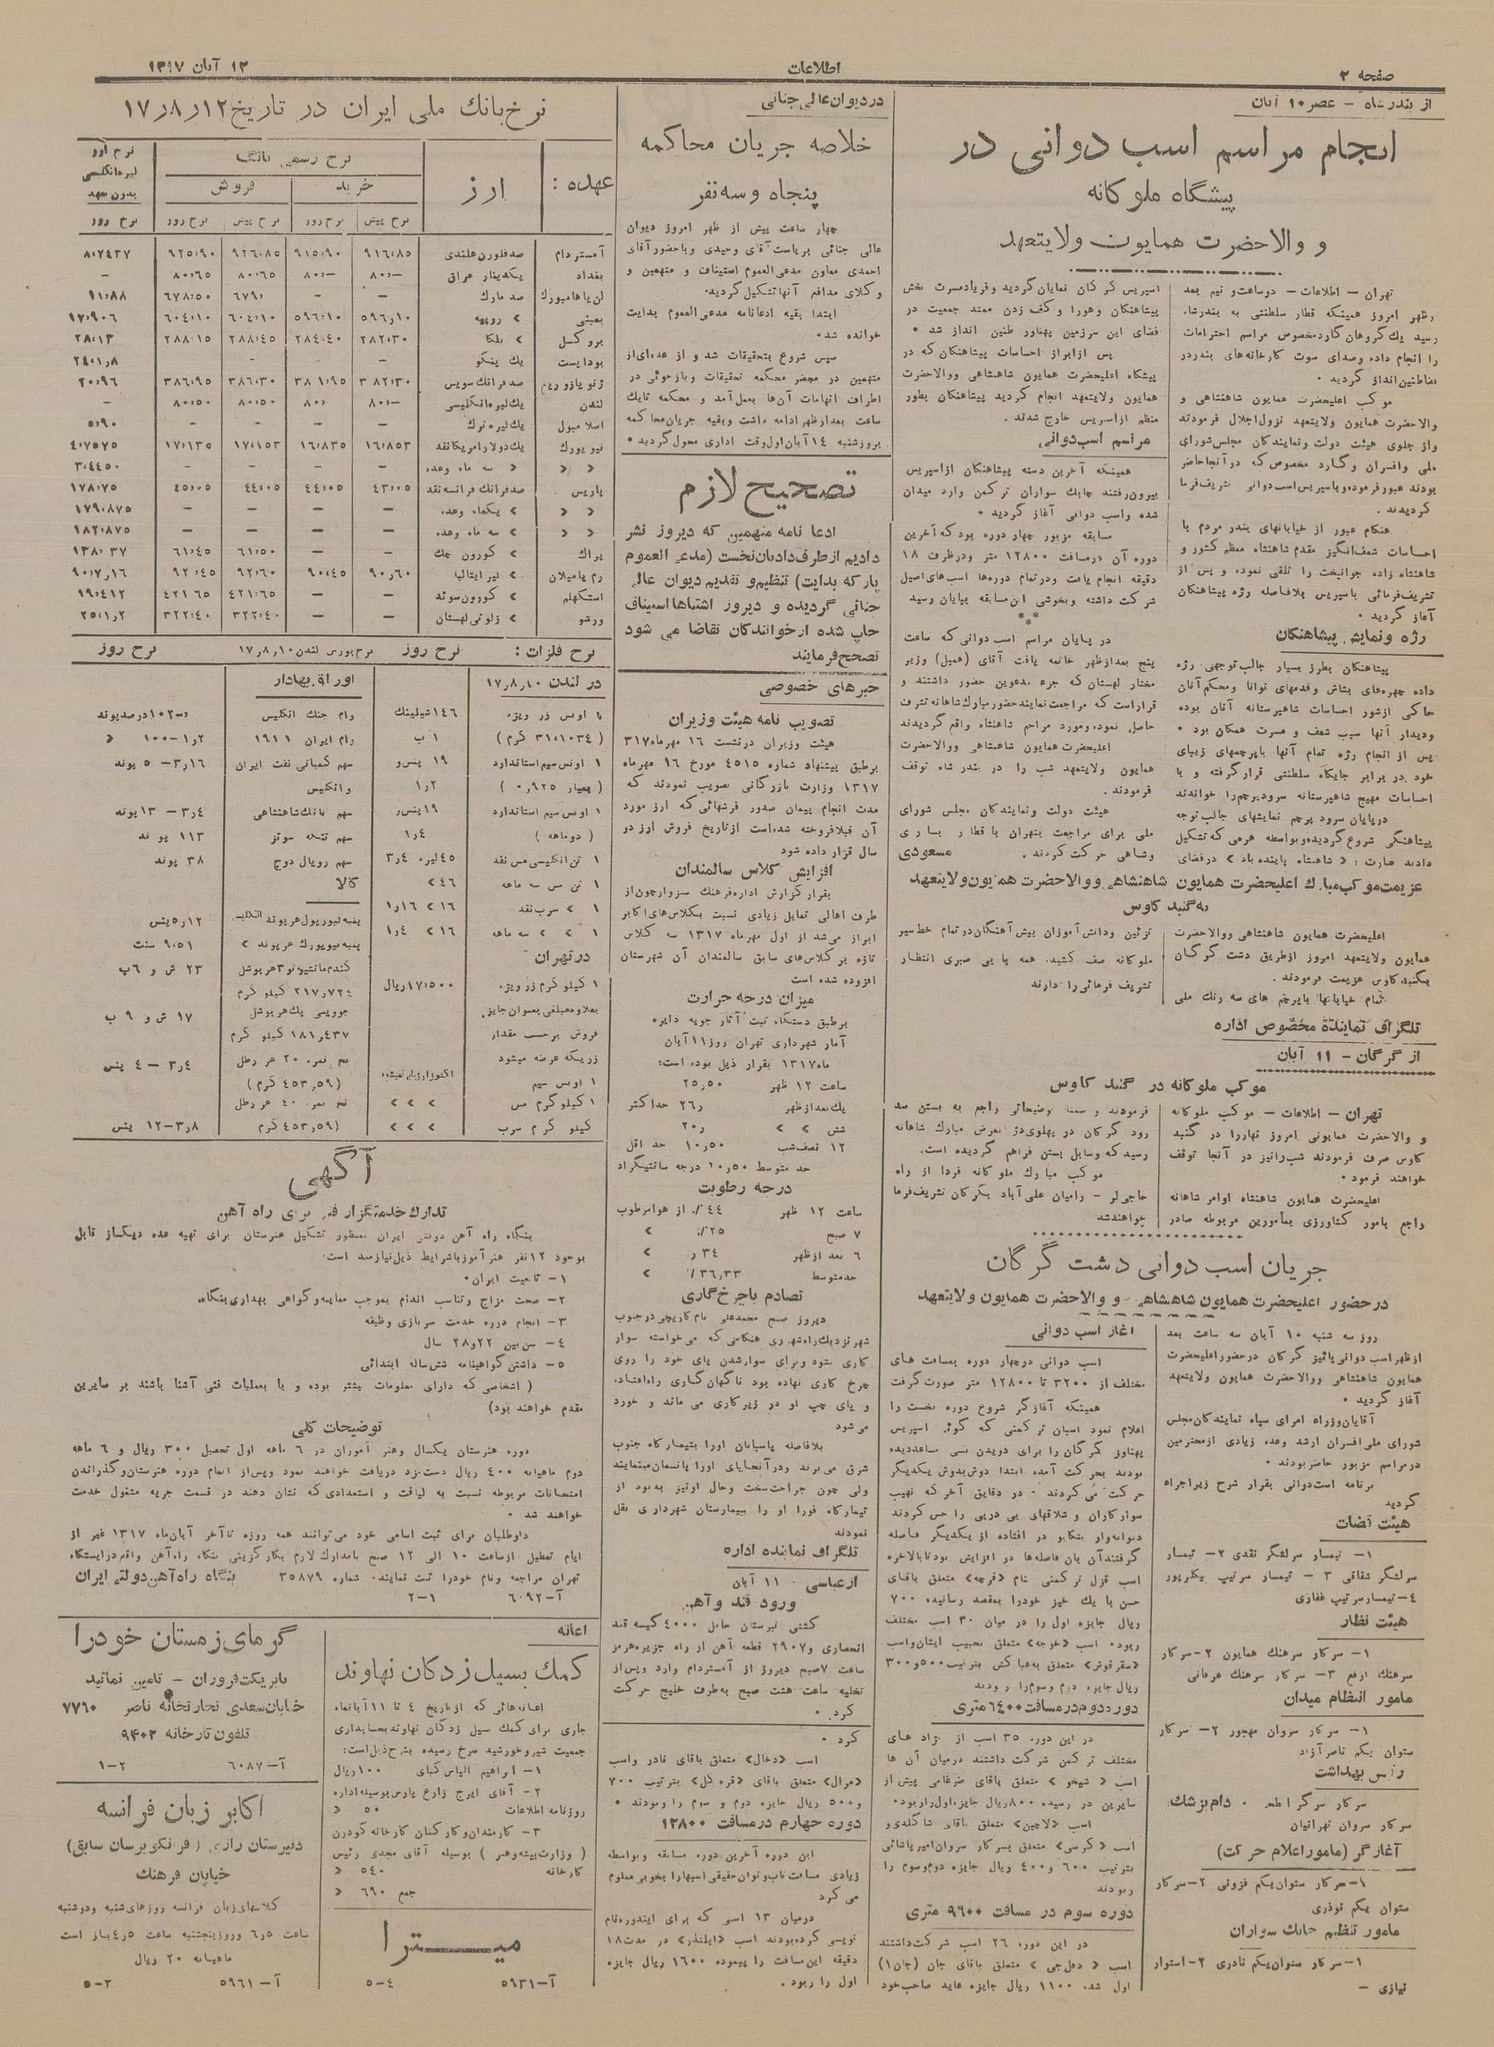 صفحه ۲
اطلاعات
۱۲ آبان ۱۳۱۷
از بندرشاه - عصر ۱۰ آبان
انجام مراسم اسب دوانی در
پیشگاه ملوکانه
و والاحضرت همایون ولایتعهد
تهران - اطلاعات - دوساعت و نیم بعد
ظهر امروز همینکه قطار سلطنتی به بندرشاه
رسید یک گروهان گارد مخصوص مراسم احترامات
را انجام داده و صدای سوت کارخانه های بندر در
موکب اعلیحضرت همایون شاهنشاهی و
والاحضرت همایون ولایتعهد نزول اجلال فرمودند
و از جلوی هیئت دولت و نمایندگان مجلس شورای
ملی و افسران و گارد مخصوص که در آنجا حاضر
بودند عبور فرموده و با سپریس اسب دوانی تشریف فرما
گردیدند.
هنگام عبور از خیابانهای بندر مردم با
احساسات شعف انگیز مقدم شاهنشاه معظم کشور و
شاهنشاه زاده جوانبخت را تلقی نموده و پس از
تشریف فرمائی باسپریس بلافاصله رژه پیشاهنگان
آغاز گردید.
رژه و نمایش پیشاهنگان
پیشاهنگان بطرز بسیار جالب توجهی رژه
داده چهره های بشاش و قدمهای توانا و محکم آنان
حاکی از شور احساسات شاهپرستانه آنان بوده
و دیدار آنها سبب شعف و مسرت همگان بود.
پس از انجام رژه تمام آنها با پرچمهای زیبای
خود در برابر جایگاه سلطنتی قرار گرفته و با
احساسات مهیج شاهپرستانه سرود پرچم را خواندند
در پایان سرود پرچم نمایشهای جالب توجه
پیشاهنگی شروع گردیده و بواسطه هرمی که تشکیل
دادند عبارت: «شاهنشاه پاینده باد» در فضای
اسپریس گرگان نمایان گردید و فریاد مسرت بخش
پیشاهنگان و هورا و کف زدن ممتد جمعیت در
فضای این سرزمین پهناور طنین انداز شد.
پس از ابراز احساسات پیشاهنگان که در
پیشگاه اعلیحضرت همایون شاهنشاهی و والاحضرت
همایون ولایتعهد انجام گردید پیشاهنگان بطور
منظم از اسپریس خارج شدند.
مراسم اسب دوانی
همینکه آخرین دسته پیشاهنگان از اسپریس
بیرون رفتند چابک سواران ترکمن وارد میدان
شده و اسب دوانی آغاز گردید.
مسابقه مزبور چهار دوره بود که آخرین
دوره آن در مسافت ۱۲۸۰۰ متر و در ظرف ۱۸
دقیقه انجام یافت و در تمام دوره ها اسب های اصیل
شرکت داشته و بخوشی این مسابقه بپایان رسید
در پایان مراسم اسب دوانی که ساعت
پنج بعد از ظهر خاتمه یافت آقای (همپل) وزیر
مختار لهستان که جزء مدعوین حضور داشتند و
قرار است که مراجعت نمایند حضور مبارک شاهانه تشرف
حاصل نموده و مورد مراحم شاهنشاه واقع گردیدند
اعلیحضرت همایون شاهنشاهی و والاحضرت
همایون ولایتعهد شب را در بندر شاه توقف
فرمودند.
هیئت دولت و نمایندگان مجلس شورای
ملی برای مراجعت بتهران با قطار بساری
و شاهی حرکت کردند. مسعودی
عزیمت موکب مبارک اعلیحضرت همایون شاهنشاهی و والاحضرت همایون ولایتعهد
به گنبد کاوس
اعلیحضرت همایون شاهنشاهی و والاحضرت
همایون ولایتعهد امروز از طریق دشت گرگان
بگنبد کاوس عزیمت فرمودند.
تمام خیابانها با پرچم های سه رنگ ملی
تزئین و دانش آموزان پیش آهنگان در تمام خط سیر
ملوکانه صف کشیده همه با بی صبری انتظار
تشریف فرمائی را دارند
تلگراف نماینده مخصوص اداره
از گرگان - ۱۱ آبان
موکب ملوکانه در گنبد کاوس
تهران - اطلاعات - موکب ملوکانه
و والاحضرت همایونی امروز نهار را در گنبد
کاوس صرف فرمودند شب را نیز در آنجا توقف
خواهند فرمود.
اعلیحضرت همایون شاهنشاه اوامر شاهانه
راجع بامور کشاورزی بمأمورین مربوطه صادر
فرمودند و ضمناً توضیحاتی راجع به بستن سد
رود گرگان در پهلوی دژ بعرض مبارک شاهانه
رسید که وسایل بستن فراهم گردیده است.
موکب مبارک ملوکانه فردا از راه
حاجی لر - رامیان علی آباد بگرگان تشریف فرما
خواهند شد
جریان اسب دوانی دشت گرگان
در حضور اعلیحضرت همایون شاهنشاهی و والاحضرت همایون ولایتعهد
روز سه شنبه ۱۰ آبان سه ساعت بعد
از ظهر اسب دوانی پائیز گرگان در حضور اعلیحضرت
همایون شاهنشاهی و والاحضرت همایون ولایتعهد
آغاز گردید.
آقایان وزراء امرای سپاه نمایندگان مجلس
شورای ملی افسران ارشد و عده زیادی از محترمین
در مراسم مزبور حاضر بودند.
برنامه اسب دوانی بقرار شرح زیر اجراء
گردید
هیئت قضات
۱- تیمسار سرلشگر نقدی ۲- تیمسار
سرلشگر شقاقی ۳ - تیمسار سرتیپ بیگلرپور
۴- تیمسار سرتیپ غفاری
هیئت نظار
۱- سرکار سرهنگ همایون ۲- سرکار
سرهنگ ارفع ۳- سرکار سرهنگ عرفانی
مامور انتظام میدان
۱- سرکار سروان مهجور ۲- سرکار
ستوان یکم ناصر آزاد
رئیس بهداشت
سرکار سروان تهرانیان
آغازگر (مامور اعلام حرکت)
۱- سرکار ستوان یکم فزونی ۲- سرکار
ستوان یکم نوذری
مامور تنظیم چابک سواران
۱- سرکار ستوان یکم نادری ۲- استوار
نیازی -
آغاز اسب دوانی
اسب دوانی در چهار دوره بمسافت های
مختلف از ۳۲۰۰ تا ۱۲۸۰۰ متر صورت گرفت
همینکه آغازگر شروع دوره نخست را
اعلام نمود اسبان ترکمنی که گوئی اسپریس
پهناور گرگان را برای دویدن بسی مساعد دیده
بودند بحرکت آمده ابتدا دوش بدوش یکدیگر
حرکت می کردند. در دقایق آخر که نهیب
سوارکاران و شلاقهای پی در پی را حس کردند
دیوانه وار بتکاپو در افتاده از یکدیگر فاصله
گرفتند آن بان فاصله ها در افزایش بود تا بالاخره
اسب قزل ترکمنی بنام «قرچه» متعلق باقای
حسن با یک خیز خود را بمقصد رسانیده ۷۰۰
ریال جایزه اول را در میان ۳۰ اسب مختلف
ربود. اسب «خوجه» متعلق بحبیب ایشان و اسب
«سقرقوش» متعلق به عباکش بترتیب ۵۰۰ و ۳۰۰
ریال جایزه دوم و سوم را ربودند
دوره دوم در مسافت ۶۴۰۰ متری
در این دوره ۳۵ اسب از نژاد های
مختلف ترکمن شرکت داشتند درمیان آن ها
اسب «شیخو» متعلق باقای ضرغامی پیش از
سایرین در رسیده ۸۰۰ ریال جایزه اول را ربود.
اسب «لاچین» متعلق باقای شاگلدی و
اسب «کرسی» متعلق بسرکار سروان امیر پاشائی
بترتیب ۶۰۰ و ۴۰۰ ریال جایزه دوم و سوم را
ربودند
دوره سوم در مسافت ۹۶۰۰ متری
در این دوره ۲۶ اسب شرکت داشتند
اول شد. ۱۱۰۰ ریال جایزه عاید صاحب خود
در دیوان عالی جنائی
خلاصه جریان محاکمه
پنجاه و سه نفر
چهار ساعت پیش از ظهر امروز دیوان
عالی جنائی بریاست آقای وحیدی و با حضور آقای
احمدی معاون مدعی العموم استیناف و متهمین و
وکلای مدافع آنها تشکیل گردید.
ابتدا بقیه ادعانامه مدعی العموم بدایت
خوانده شد.
سپس شروع بتحقیقات شد و از عده ای از
متهمین در محضر محکمه تحقیقات و بازجوئی در
اطراف اتهامات آن ها بعمل آمد و محکمه تا یک
ساعت بعد از ظهر ادامه داشت و بقیه جریان محاکمه
بروز شنبه ۱۴ آبان اول وقت اداری محول گردید.
تصحیح لازم
ادعا نامه متهمین که دیروز نشر
دادیم از طرف دادبان نخست (مدعی العموم
پارکه بدایت) تنظیم و تقدیم دیوان عالی
جنائی گردیده و دیروز اشتباها استیناف
چاپ شده از خوانندگان تقاضا می شود
تصحیح فرمایند
خبرهای خصوصی
تصویب نامه هیئت وزیران
هیئت وزیران در نشست ۱۶ مهرماه ۳۱۷
برطبق پیشنهاد شماره ۴۵۱۵ مورخ ۱۶ مهرماه
۱۳۱۷ وزارت بازرگانی تصویب نمودند که
مدت انجام پیمان صدور فرشهائی که ارز مورد
آن قبلا فروخته شده است از تاریخ فروش ارز دو
سال قرار داده شود
افزایش کلاس سالمندان
بقرار گزارش اداره فرهنگ سبزوار چون از
طرف اهالی تمایل زیادی نسبت بکلاس های اکابر
ابراز می شد از اول مهرماه ۱۳۱۷ سه کلاس
تازه بر کلاس های سابق سالمندان آن شهرستان
افزوده شده است
میزان درجه حرارت
برطبق دستگاه ثبت آثار جویه دایره
آمار شهرداری تهران روز ۱۱ آبان
ماه ۱۳۱۷ بقرار ذیل بوده است:
ساعت ۱۲ ظهر ۲۵,۵۰
یک بعد از ظهر ۲۶٫ حداکثر
شش » » ۲۰٫
۱۲ نصف شب ۱۰٫۵۰ حد اقل
حد متوسط ۲۰٫۵۰ درجه سانتیگراد
درجه رطوبت
ساعت ۱۲ ظهر ۴۴٪ از هوا مرطوب
۷ صبح ۲۵٪ »
۶ بعد از ظهر ۳۴٫ »
حد متوسط ۳۶٫۳۳٪ »
تصادم با چرخ گاری
دیروز صبح محمدعلی نام گاریچی در جنوب
شهر نزدیک راه شهر ری هنگامی که می خواسته سوار
گاری شود و برای سوار شدن پای خود را روی
چرخ گاری نهاده بود ناگهان گاری راه افتاده
و پای چپ او در زیر گاری می ماند و خورد
می شود
بلافاصله پاسبانان او را بتیمارگاه جنوب
شرق می برند و در آنجا پای او را پانسمان مینمایند
ولی چون جراحت سخت و حال او نیز بد بود از
تیمارگاه فورا او را ببیمارستان شهرداری نقل
نمودند
تلگراف نماینده اداره
از عباسی - ۱۱ آبان
ورود قند و آهن
کشتی تبرستان حامل ۴۰۰۰ کیسه قند
انحصاری و ۲۹۰۷ قطعه آهن از راه جزیره هرمز
ساعت ۷ صبح دیروز از آمستردام وارد و پس از
تخلیه ساعت هشت صبح بطرف خلیج حرکت
کرد.
کرد.
اسب «دخال» متعلق باقای قادر و اسب
«مرال» متعلق باقای «قره کل» بترتیب ۷۰۰
و ۵۰۰ ریال جایزه دوم و سوم را ربودند.
دوره چهارم در مسافت ۱۲۸۰۰
این دوره آخرین دوره مسابقه و بواسطه
زیادی مسافت تاب و توان حقیقی اسبها را بخوبی معلوم
می کرد
درمیان ۱۳ اسبی که برای ایندوره نام
نویسی کرده بودند اسب «ایلندز» در مدت ۱۸
دقیقه این مسافت را پیموده ۱۶۰۰ ریال جایزه
اول را ربود.
نرخ بانک ملی ایران در تاریخ ۱۷٫۸٫۱۲
عهده: ارز نرخ رسمی بانک نرخ ارز لیره انگلیسی بدون تعهد
خرید فروش
نرخ پیش نرخ روز نرخ پیش نرخ روز نرخ روز
آمستردام صد فلورن هلندی ۹۱۶٫۸۵ ۹۱۵٫۹۰ ۹۲۶٫۸۵ ۹۲۵٫۹۰ ۸٫۷۴۳۷
بغداد یکدینار عراق ۸۰٫- ۸۰٫- ۸۰٫۶۵ ۸۰٫۶۵ -
برلن یا هامبورک صد مارک - - ۶۷۹٫ ۶۷۸٫۵۰ ۱۱٫۸۸
بمبئی » روپیه ۵۹۶٫۱۰ ۵۹۶٫۱۰ ۶۰۴٫۱۰ ۶۰۴٫۱۰ ۱۷٫۹۰۶
بروکسل » بلگا ۲۸۲٫۳۰ ۲۸۴٫۴۰ ۲۸۸٫۴۵ ۲۸۸٫۱۵ ۲۸٫۱۳
بوداپست یک پنگو - - - - ۲۴٫۱٫۸
ژنو یا زوریخ صد فرانک سویس ۳۸۲٫۳۰ ۳۸۱٫۹۵ ۳۸۶٫۳۰ ۳۸۶٫۹۵ ۲۰٫۹۶
لندن یک لیره انگلیسی ۸۰٫- ۸۰٫ ۸۰٫۵۰ ۸۰٫۵۰ -
اسلامبول یک لیره ترک ۵٫۹۰
نیویورک یک دولار امریکا نقد ۱۶٫۸۵۳ ۱۶٫۸۳۵ ۱۷٫۱۵۳ ۱۷٫۱۳۵ ۴٫۷۵۷۵
» » » سه ماه وعده - - - - ۳٫۴۴۵۰
پاریس صد فرانک فرانسه نقد ۴۳٫۰۵ ۴۴٫۰۵ ۴۴٫۰۵ ۴۵٫۰۵ ۱۷۸٫۷۵
» » » یکماه وعده - - - - ۱۷۹٫۸۷۵
» » » سه ماه وعده - - - - ۱۸۲٫۸۷۵
پراک » کورون چک - - ۶۱٫۵۰ ۶۱٫۴۵ ۱۳۸٫۳۷
رم یا میلان » لیر ایتالیا ۹۰٫۶۰ ۹۰٫۴۵ ۹۲٫۶۰ ۹۲٫۴۵ ۹۰٫۷٫۱۶
استکهلم » کورون سوئد - - ۴۲۱٫۶۵ ۴۲۱٫۶۵ ۱۹٫۴۱۲
ورشو » زلوتی لهستان - - ۳۲۲٫۴۰ ۳۲۲٫۴۰ ۲۵٫۱٫۲
نرخ فلزات: نرخ روز نرخ بورس لندن ۱۷٫۸٫۱۰ نرخ روز
در لندن ۱۷٫۸٫۱۰ اوراق بهادار
۱ اونس زر ویژه ۱۴۶ شیلینک وام جنک انگلیس ۱۰۲-۰ درصد پوند
(۳۱٫۱۰۳۴ گرم) ۱ پ وام ایران ۱۹۱۱ ۱٫۲-۱۰۰ »
۱ اونس سیم استاندارد ۱۹ پنس و سهم کمپانی نفت ایران ۳٫۱۶ - ۵ پوند
(بعیار ۰٫۹۲۵) ۱٫۲ و انگلیس
۱ اونس سیم استاندارد ۱۹ پنس و سهم بانک شاهنشاهی ۳٫۴ - ۱۳ پوند
(دوماهه) ۱٫۴ سهم ترعه سوئز ۱۱۳ پوند
۱ تن انگلیسی مس نقد ۴۵ لیره ۳٫۴ سهم رویال دوچ ۳۸ پوند
۱ تن مس سه ماهه ۴۶ » کالا
۱ » سرب نقد ۱۶ » ۱٫۱۶ پنبه لیورپول هر پوند انگلیسی ۵٫۱۲ پنس
۱ » » سه ماهه ۱۶ » ۱٫۴ پنبه نیویورک هر پوند » ۹٫۵۱ سنت
در تهران گندم مانیتوبا ۳ هر بوشل ۲۳ ش و ۶ پ
۱ کیلو گرم زر ویژه ۱۷٫۵۰۰ ریال ۲۱۷٫۷۲۴ کیلو گرم
بعلاوه مبلغی بعنوان جایزه جو پسی یک هر بوشل ۱۷ ش و ۹ پ
فروش برحسب مقدار ۱۸۱٫۴۳۷ کیلو گرم
زریکه عرضه میشود پشم نمره ۲۰ هر رطل ۳٫۴ - ۴ پنس
۱ اونس سیم (۴۵۳٫۵۹ گرم)
۱ کیلو گرم مس » » » پشم نمره ۴۰ هر رطل
کیلو گرم سرب » » » (۴۵۳٫۵۹ گرم) ۳٫۸ - ۱۲ پنس
آگهی
تدارک خدمتگزار فنی برای راه آهن
بنگاه راه آهن دولتی ایران بمنظور تشکیل هنرستان برای تهیه عده دیگساز قابل
بوجود ۱۲ نفر هنرآموز باشرایط ذیل نیازمند است.
۱- تابعیت ایران.
۲- صحت مزاج و تناسب اندام بموجب معاینه و گواهی بهداری بنگاه.
۳- انجام دوره خدمت سربازی و وظیفه
۴- سن بین ۲۲ و ۲۸ سال
۵- داشتن گواهینامه شش ساله ابتدائی
(اشخاصی که دارای معلومات بیشتر بوده و یا بعملیات فنی آشنا باشند بر سایرین
مقدم خواهند بود)
توضیحات کلی
دوره هنرستان یکسال و هنر آموزان در ۶ ماهه اول تحصیل ۳۰۰ ریال و ۶ ماهه
دوم ماهیانه ۴۰۰ ریال دستمزد دریافت خواهند نمود و پس از اتمام دوره هنرستان و گذراندن
امتحانات مربوطه نسبت به لیاقت و استعدادی که نشان دهند در قسمت جریه مشغول خدمت
خواهند شد.
داوطلبان برای ثبت اسامی خود می توانند همه روزه تا آخر آبان ماه ۱۳۱۷ غیر از
ایام تعطیل از ساعت ۱۰ الی ۱۲ صبح بامدارک لازم بکارگزینی بنگاه راه آهن واقع در ایستگاه
تهران مراجعه و نام خود را ثبت نمایند. شماره ۳۵۸۷۹ بنگاه راه آهن دولتی ایران
آ-۶۰۹۲ ۲-۱
اعانه
کمک بسیل زدگان نهاوند
اعانه هائی که از تاریخ ۴ تا ۱۱ آبانماه
جاری برای کمک سیل زدگان نهاوند بحسابداری
جمعیت شیر و خورشید سرخ رسیده بشرح ذیل است:
۱- ابراهیم الیاس کبای ۱۰۰ ریال
۲- آقای ایرج زارع پارس بوسیله اداره
روزنامه اطلاعات ۵۰ »
۳- کارمندان و کارکنان کارخانه گودرن
(وزارت پیشه و هنر) بوسیله آقای مجدی رئیس
کارخانه ۵۴۰ »
جمع ۶۹۰ »
میترا
آ-۵۹۳۱ ۴-۵
گرمای زمستان خود را
با بریکت فروزان - تامین نمائید
خیابان سعدی تجارتخانه ناصر ۷۷۶۰
تلفون تجارخانه ۹۴۰۳
آ-۶۰۸۷ ۲-۱
اکابر زبان فرانسه
دبیرستان رازی (فرانکوپرسان سابق)
خیابان فرهنگ
کلاسهای زبان فرانسه روزهای شنبه و دوشنبه
ساعت ۵ر۶ و روز پنجشنبه ساعت ۵ر۴ باز است
ماهیانه ۲۰ ریال
آ-۵۹۶۱ ۳-۵